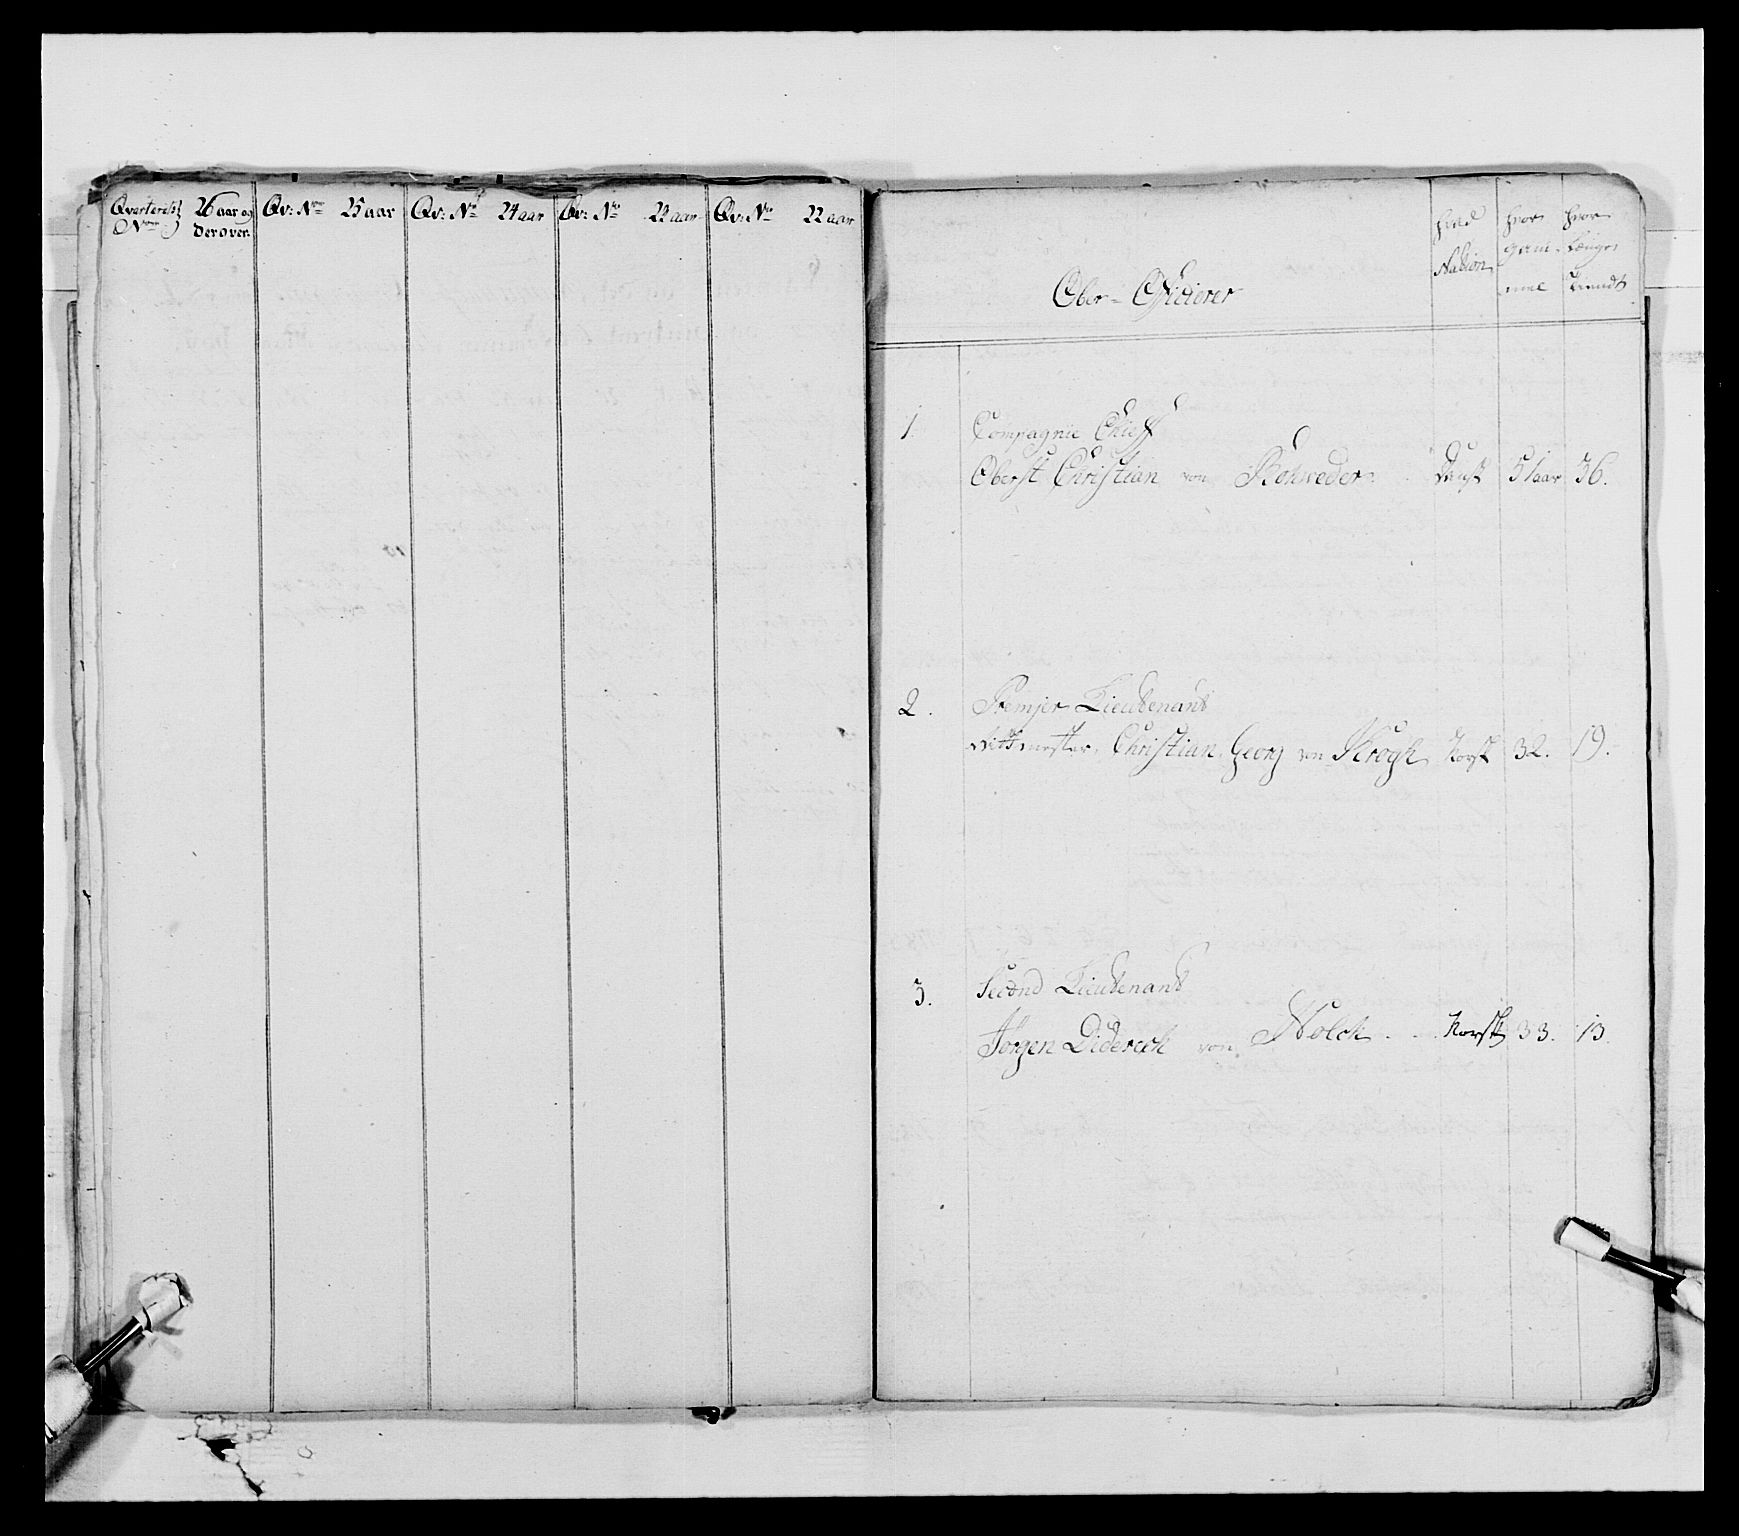 Qvarterets 26 aar og
Nroe derover.
Qv: Nroe 25 aar
Qv: No 24 aar
Qv: No 23 aar
Qv: No 22 aar
Ober-Officierer
hvad
Nation
hvor
gam-
mel
hvor
længe
tiendt
1. Compagnie Chieff
Oberst Christian von Rohweder. Dansk 51 aar 36.
2. Premjer Lieutenant
Rittmester, Christian Georg von Krogh Norsk 32. 19.
3. Second Lieutenant
Jørgen Diderech von Holck Norsk 33. 13.